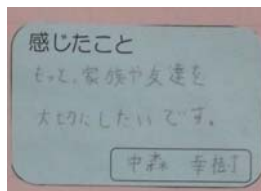 感じたこと
もっと、家族や友達を
大切にしたいです。
中森 幸樹